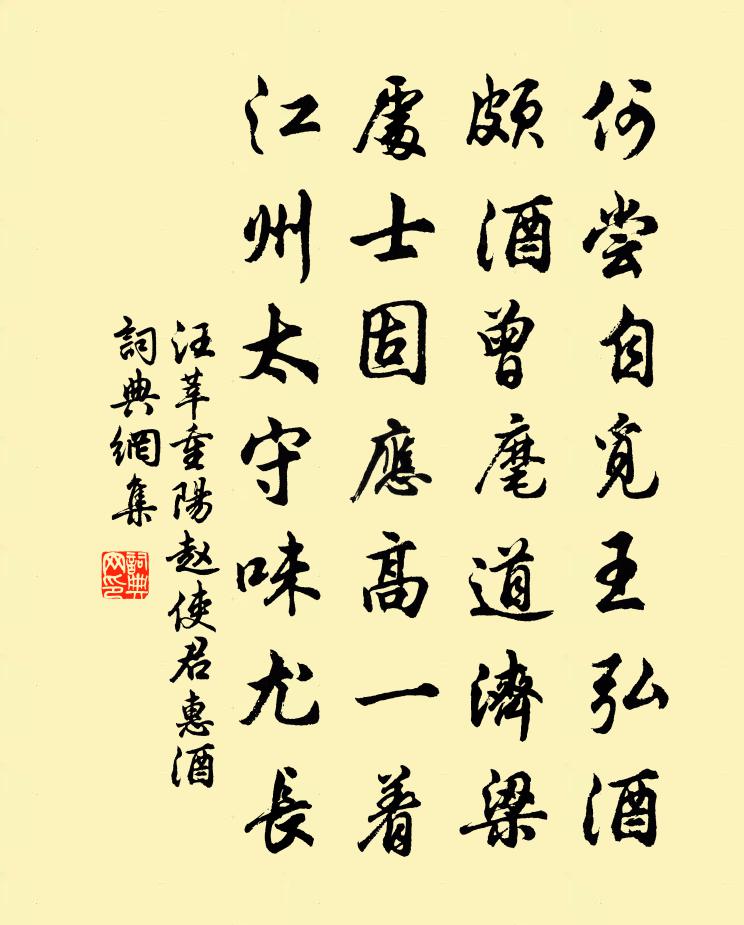 何尝自觅王弘酒
頗酒曾麾道濟梁
處士固應高一着
江州太守味尤長
汪莘重陽赵使君惠酒
詞典網集
詞典
网印